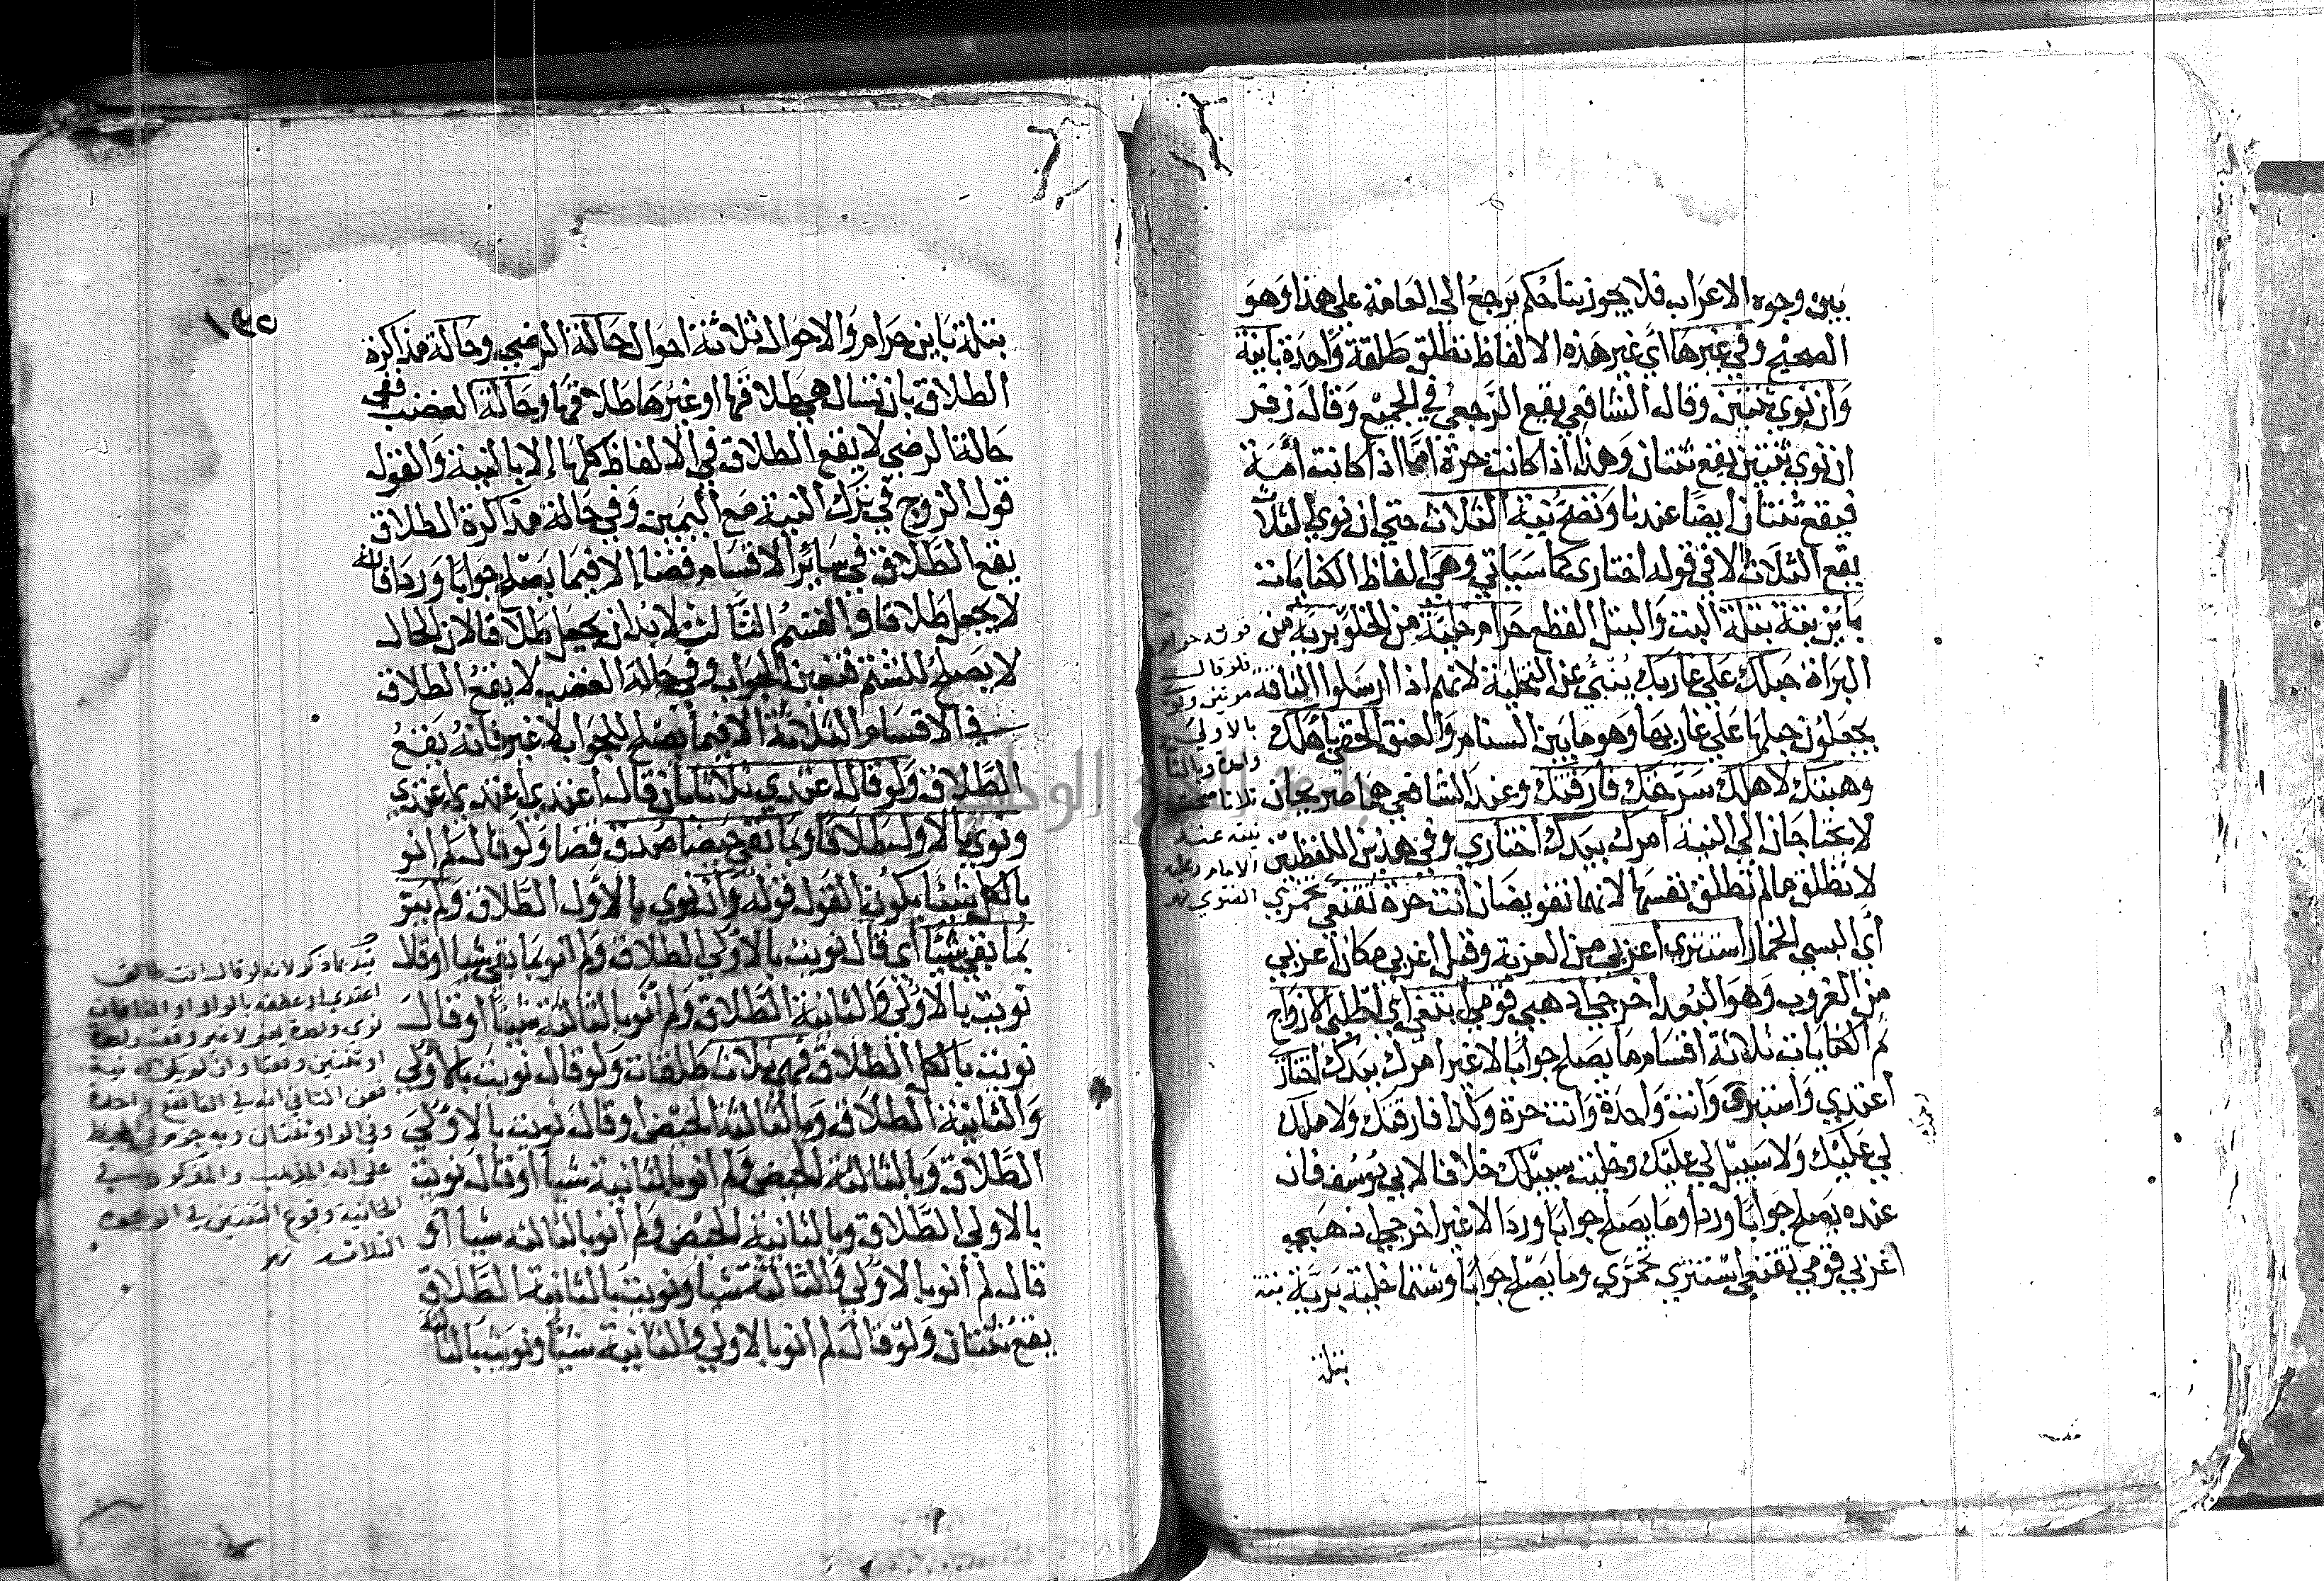 بين وجوه الاعراب فلا يجوز بنا حكم يرجع الى العامة على هذا وهو
الصحيح وفي غيرها اي غير هذه الالفاظ تطلق طلقة واحدة باينة
وان نوى ثنتين وقال الشافعي يقع الرجعي في الجميع وقال زفر
ان نوى ثنتين يقع ثنتان وهذا اذا كانت حرة اما اذا كانت امة
فيقع ثنتان ايضا عندنا وتصح نية الثلاث حتى ان نوى الثلاث
يقع الثلاث الا في قوله اختارى كما سياتي وهي الفاظ الكنايات
باين بتة بتلة البت والبتل القطع حرام خلية من الخلو برية من
البراة حبلك على غاربك ينبئ عن التخلية لانهم اذا ارسلوا الناقة
يجعلون حبلها على غاربها وهو ما بين السنام والعنق الحقي باهلك
وهبتك لاهلك سرحتك فارقتك وعند الشافعي هما صريحان
لا يحتاجان الى النية امرك بيدك اختاري وفي هذين اللفظين
لا تطلق ما لم تطلق نفسها لانهما تفويضان انت حرة تقنعي تخمري
أي البسي الخمار استتري اعزبي من العزبة وقيل اغربي مكان اعزبي
من الغروب وهو البعد اخرجي اذهبي قومي ابتغي اي اطلبي الازواج
ثم الكنايات ثلاثة اقسام ما يصلح جوابا لا غير امرك بيدك اختاري
اعتدي واستبري وانت واحدة وانت حرة وكذا فارقتك ولا ملك
لي عليك ولا سبيل لي عليك وخليت سبيلك خلافا لابي يوسف فان
عنده يصلح جوابا وردا وما يصلح جوابا وردا لا غير اخرجي اذهبي
اغربي قومي تقنعي استتري تخمري وما يصلح جوابا وشتما خلية برية بتة
بتلة
فلو قال
بالاولى
ثلاثا
نيته عند
الامام وعليه
الفتوى نهر
١٤٢
بتلة باين حرام والاحوال ثلاثة احوال حالة الرضي وحالة مذاكرة
الطلاق بان تسال هي طلاقها او غيرها طلاقها وحالة الغضب ففي
حالة الرضي لا يقع الطلاق في الالفاظ كلها إلا بالنية والقول
قول الزوج في ترك النية مع اليمين وفي حالة مذاكرة الطلاق
يقع الطلاق في سائر الاقسام قضا إلا فيما يصلح جوابا وردا فانه
لا يجعل طلاقا والقسم الثالث لا بد ان يجعل طلاقا لان الحال
لا يصلح للشتم فتعين الجواب وفي حالة الغضب لا يقع الطلاق
في الاقسام الثلاثة الا فيما يصلح للجواب لا غير فانه يقع
الطلاق ولو قال اعتدي ثلاثا بان قال اعتدي اعتدي اعتدي
ونوى بالاول طلاقا وبما بقي حيضا صدق قضا ولو قال لم انو
بالكل شيئا يكون القول قوله وان نوى بالاول الطلاق ولم ينو
بما بقي شيئا أي قال نويت بالاولى الطلاق ولم انو بما بقي شيا او قال
نويت بالاولى والثانية الطلاق ولم انو بالثالثة شيئا او قال
نويت بالكل الطلاق فهي ثلاث طلقات ولو قال نويت بالاولى
والثانية الطلاق وبالثالثة الحيض او قال نويت بالاولى
الطلاق وبالثالثة الحيض ولم انو بالثانية شيا او قال نويت
بالاولى الطلاق وبالثانية الحيض ولم انو بالثالثة شيا او
قال لم انو بالاولى والثالثة شيا ونويت بالثانية الطلاق
يقع ثنتان ولو قال لم انو بالاولى والثانية شيئا ونويت بالثالثة
قيد بما ذكر لانه لو قال انت طالق
اعتدي او عطفه بالواو او الفا فان
نوى واحدة او لا غير وقعت واحدة
او ثنتين وقعتا وان لم يكن له نية
فعن الثاني انه في الفا تقع واحدة
وفي الواو ثنتان وبه جزم في المحيط
على انه المذهب والمذكور في
الخانية وقوع الثنتين في الوجوه
الثلاث نهر